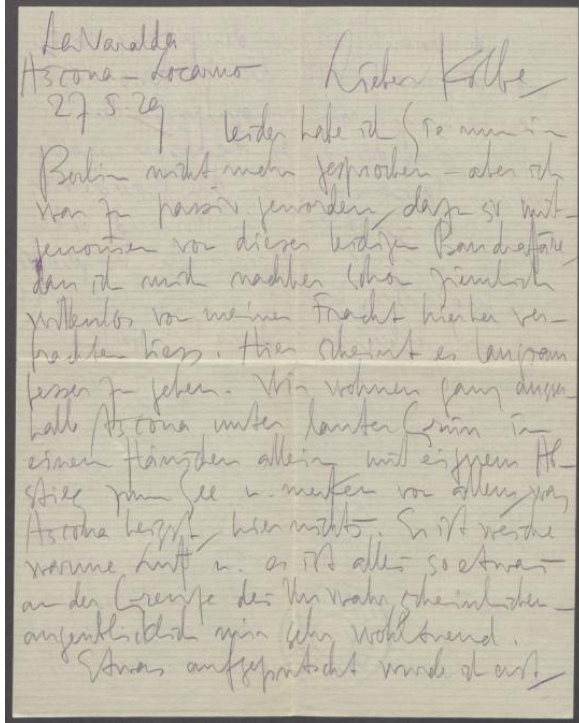 La Varalda
Ascona – Locarno
27.5.29
Lieber Kolbe
leider habe ich Sie nun in
Berlin nicht mehr gesprochen – aber ich
war zu passiv geworden, dazu so mit-
genommen von dieser leidigen
dass ich mich nachher schon ziemlich
willenlos von meiner Fracht hierher ver-
frachten liess. Hier scheint es langsam
besser zu gehen. Wir wohnen ganz ausser-
halb Ascona unter lauter Grün in
einem Häuschen allein mit eignem Ab-
stieg zum See u. merken von allem, was
Ascona heisst, hier nichts. Es ist weiche
warme Luft u. es ist alles so etwas
an der Grenze des Unwahrscheinlichen –
augenblicklich mir sehr wohltuend.
Etwas aufgeputscht wurde ich erst